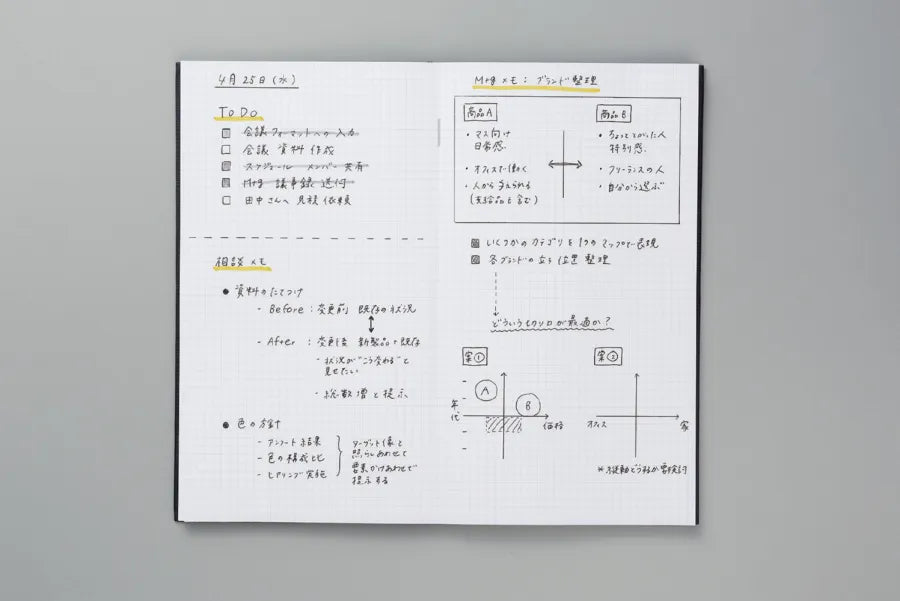 4月25日(水)
To Do
会議フォーマットへの入力
会議 資料 作成
スケジュール メンバー 共有
Mtg 議事録 送付
田中さんへ 見積 依頼
相談 メモ
● 資料のたてつけ
- Before : 変更前 既存の状況
- After : 変更後 新製品+既存
・状況が"こう変わる"と
見せたい
・総数増と提示
● 色の方針
- アンケート結果
- 色の構成比
- ヒアリング実施
ターゲット像と
照らしあわせて
要素かけあわせで
提示する
Mtg メモ : ブランド整理
商品A
・マス向け
日常感
・オフィスで働く
・人から与えられる
(支給品も含む)
商品B
・ちょっととがった人
特別感
・フリーランスの人
・自分から選ぶ
いくつかのカテゴリを1つのマップで表現
各ブランドの立ち位置整理
どういう切り口が最適か?
案①
年代
A
B
価格
案②
オフィス
家
*縦軸どうするか要検討